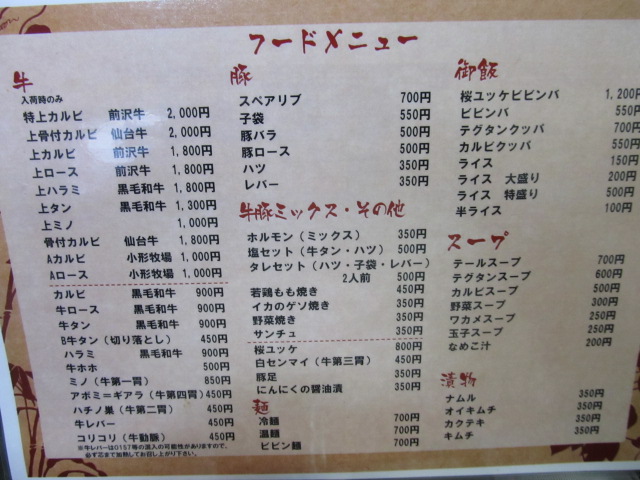 フードメニュー
牛
入荷時のみ
特上カルビ 前沢牛 2,000円
上骨付カルビ 仙台牛 2,000円
上カルビ 前沢牛 1,800円
上ロース 前沢牛 1,800円
上ハラミ 黒毛和牛 1,800円
上タン 黒毛和牛 1,300円
上ミノ 1,000円
骨付カルビ 仙台牛 1,800円
Aカルビ 小形牧場 1,000円
Aロース 小形牧場 1,000円
カルビ 黒毛和牛 900円
牛ロース 黒毛和牛 900円
牛タン 黒毛和牛 900円
B牛タン(切り落とし) 450円
ハラミ 黒毛和牛 900円
牛ホホ 500円
ミノ(牛第一胃) 850円
アボミ=ギアラ(牛第四胃) 450円
ハチノ巣(牛第二胃) 450円
牛レバー 450円
コリコリ(牛動脈) 450円
※牛レバーはO157等の混入の可能性がありますので、
必ず芯まで加熱してお召し上がり下さい。
豚
スペアリブ 700円
子袋 550円
豚バラ 500円
豚ロース 500円
ハツ 350円
レバー 350円
牛豚ミックス・その他
ホルモン(ミックス) 350円
塩セット(牛タン・ハツ) 500円
タレセット(ハツ・子袋・レバー)
2人前 500円
若鶏もも焼き 450円
イカのゲソ焼き 350円
野菜焼き 350円
サンチュ 350円
桜ユッケ 800円
白センマイ(牛第三胃) 450円
豚足 350円
にんにくの醤油漬 350円
麺
冷麺 700円
温麺 700円
ビビン麺 700円
御飯
桜ユッケビビンバ 1,200円
ビビンバ 550円
テグタンクッパ 700円
カルビクッパ 550円
ライス 150円
ライス 大盛り 200円
ライス 特盛り 500円
半ライス 100円
スープ
テールスープ 700円
テグタンスープ 600円
カルビスープ 500円
野菜スープ 300円
ワカメスープ 250円
玉子スープ 250円
なめこ汁 200円
漬物
ナムル 350円
オイキムチ 350円
カクテキ 350円
キムチ 350円